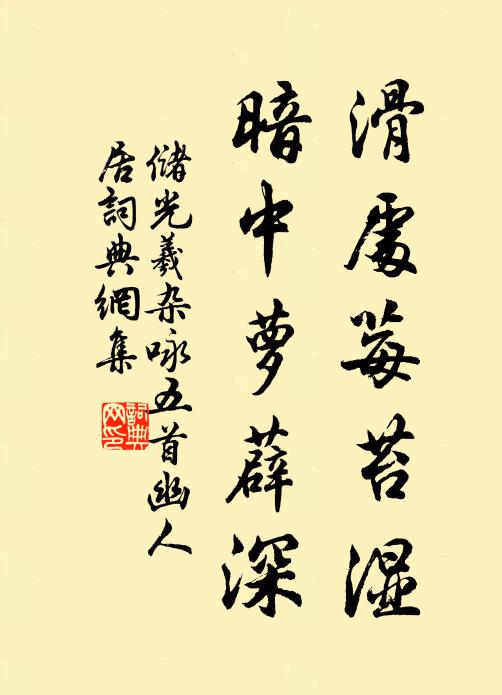 滑處莓苔湿
暗中萝薜深
儲光羲杂咏五首幽人
居詞典網集
詞典网印